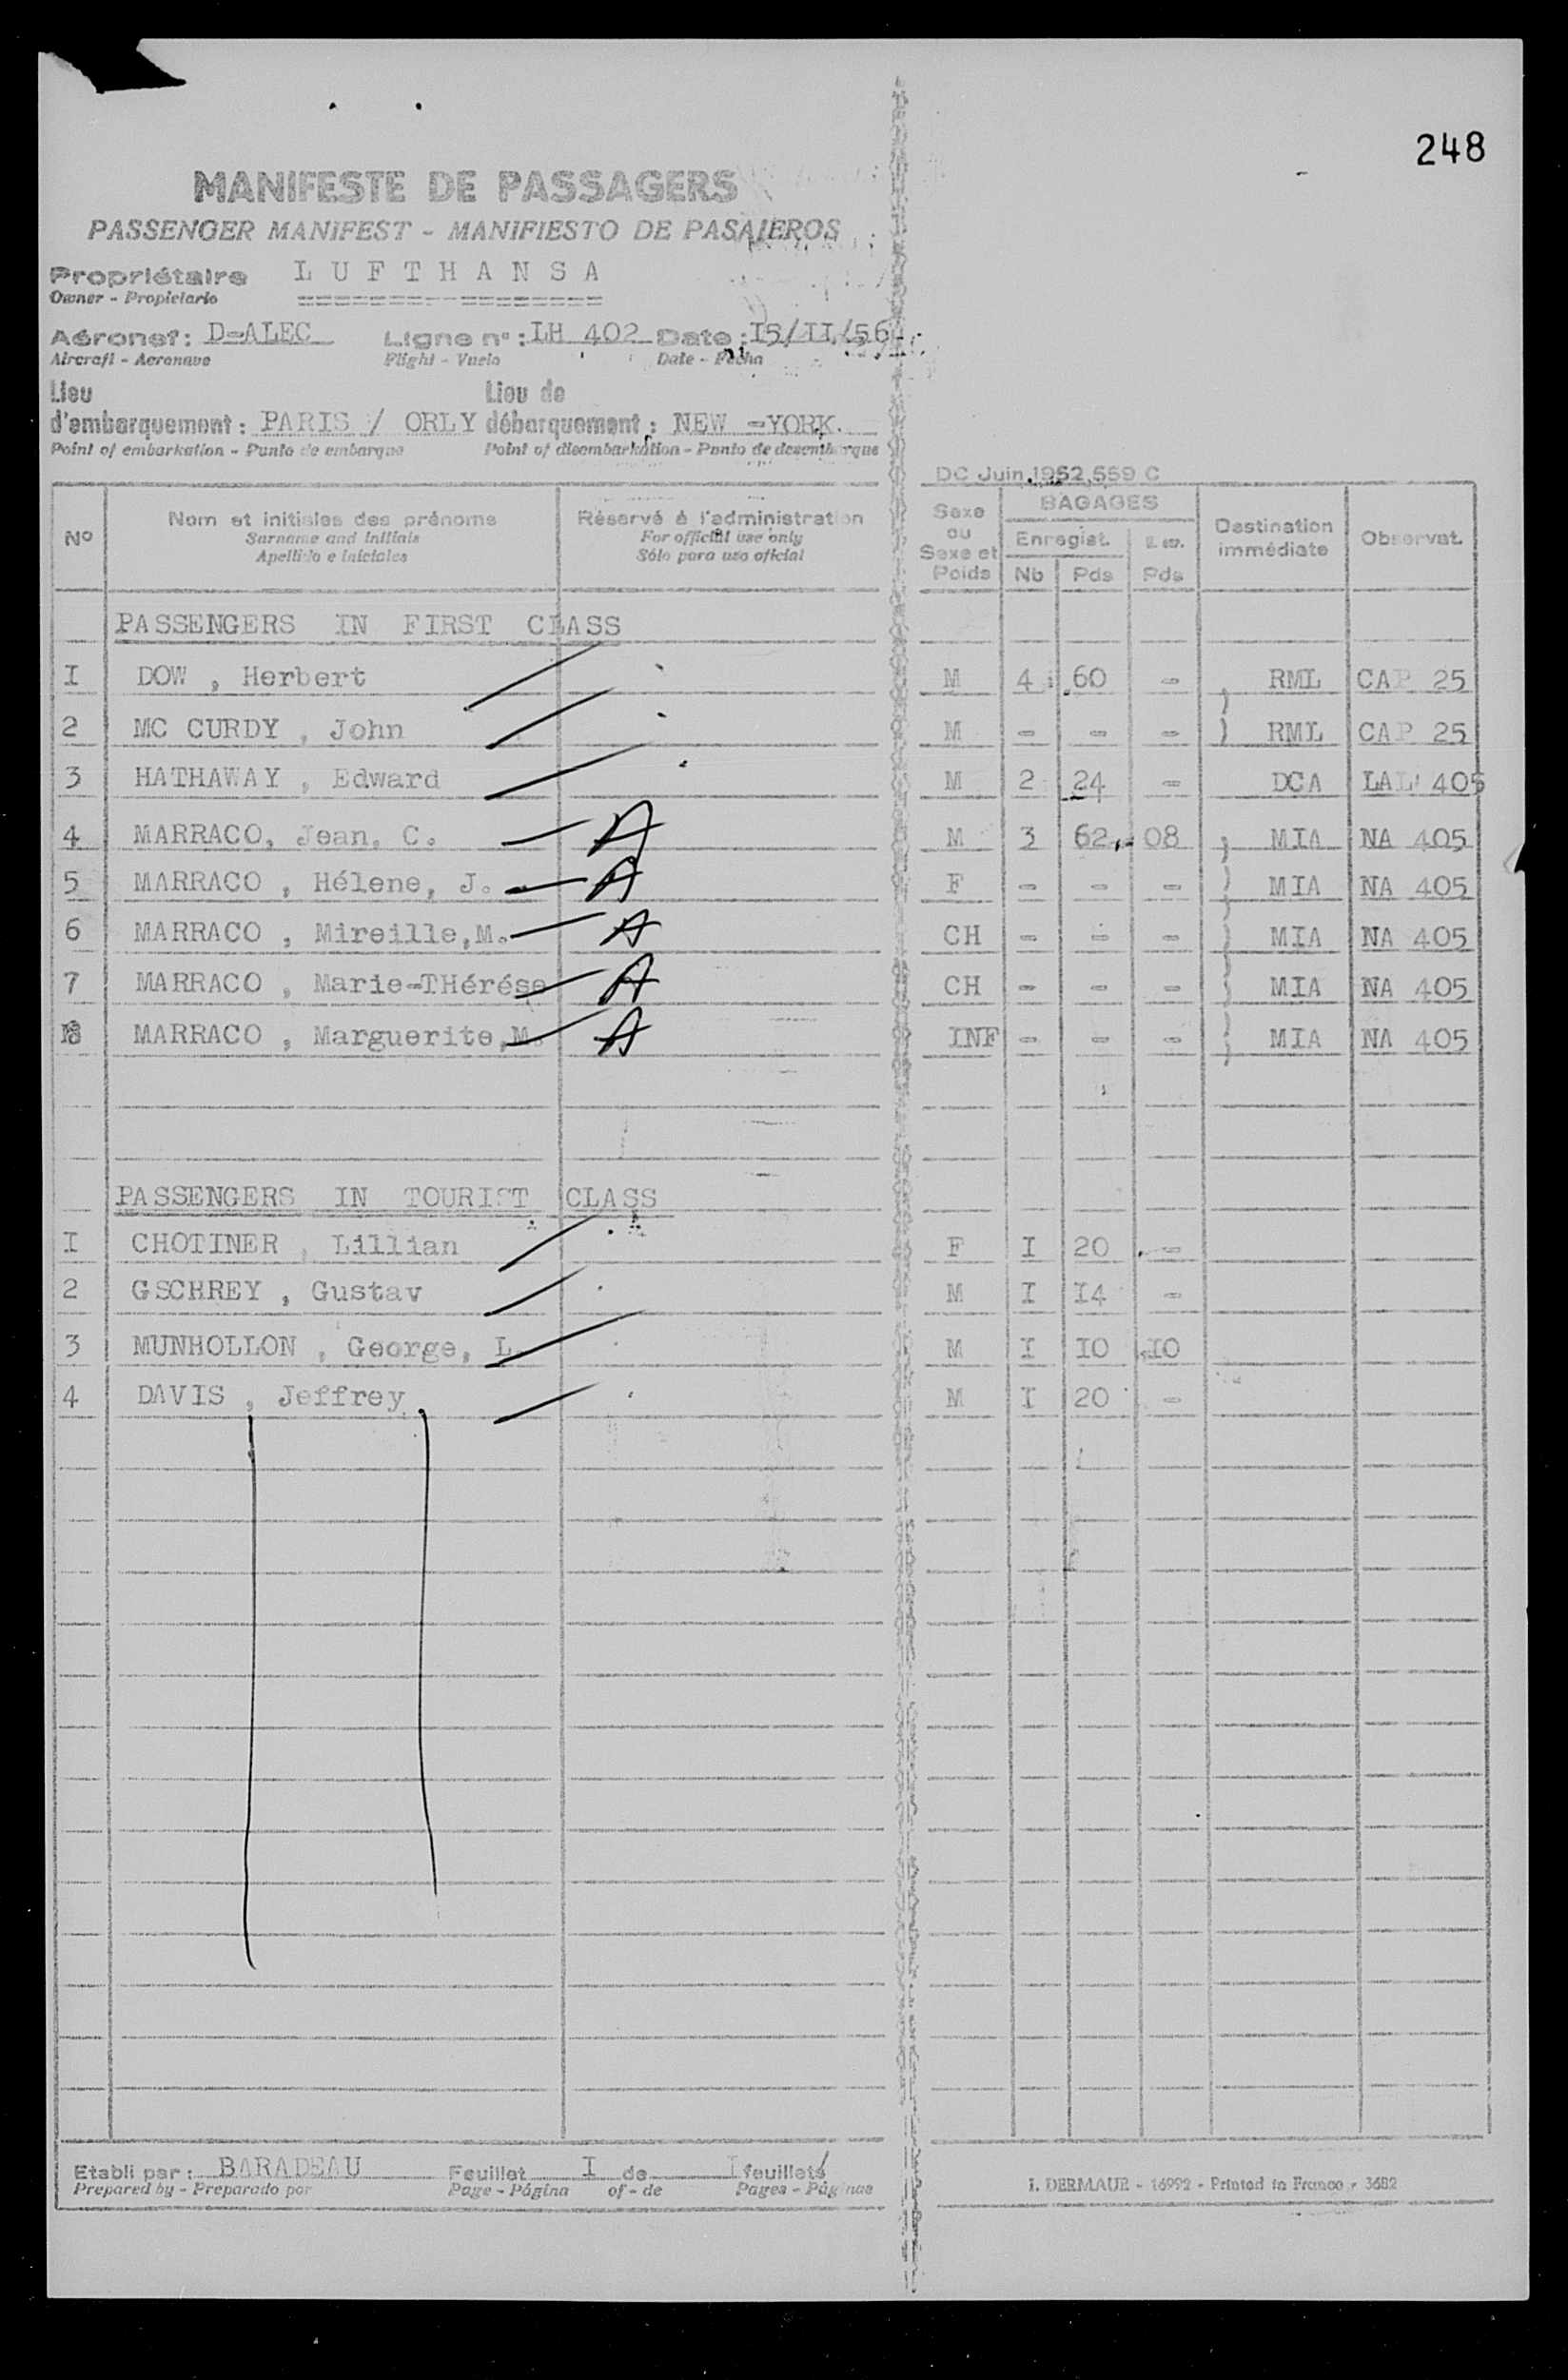 248
MANIFESTE DE PASSAGERS
PASSENGER MANIFEST - MANIFIESTO DE PASAJEROS
Propriétaire LUFTHANSA
Owner - Propietario
Aéronef: D-ALEC Ligne n°: LH 402 Date: I5/II/56
Aircraft - Aeronave Flight - Vuelo Date - Fecha
Lieu Lieu de
d'embarquement: PARIS / ORLY débarquement: NEW =YORK.
Point of embarkation - Punto de embarque Point of disembarkation - Punto de desembarque
DC Juin 1952 559 C
N° Nom et initiales des prénoms Réservé à l'administration Sexe ou Sexe et Poids BAGAGES Destination immédiate Observat.
Surname and initials For official use only Enregist.
Apellido e iniciales Sólo para uso oficial Nb Pds Pds
PASSENGERS IN FIRST CLASS
I DOW , Herbert M 4 60 - RML CAP 25
2 MC CURDY , John M - - - RML CAP 25
3 HATHAWAY , Edward M 2 24 - DCA LAL 405
4 MARRACO, Jean, C. A M 3 62 08 MIA NA 405
5 MARRACO , Hélene, J. A F - - - MIA NA 405
6 MARRACO , Mireille,M. A CH - - - MIA NA 405
7 MARRACO , Marie=THérése A CH - - - MIA NA 405
8 MARRACO , Marguerite,M. A INF - - - MIA NA 405
PASSENGERS IN TOURIST CLASS
I CHOTINER , Lillian F I 20 -
2 GSCHREY , Gustav M I I4 -
3 MUNHOLLON , George, L. M I IO IO
4 DAVIS , Jeffrey M I 20 -
Etabli par: BARADEAU Feuillet I de I feuillets
Prepared by - Preparado por Page - Página of - de Pages - Páginas
I. DERMAUR - 16992 - Printed in France - 3682